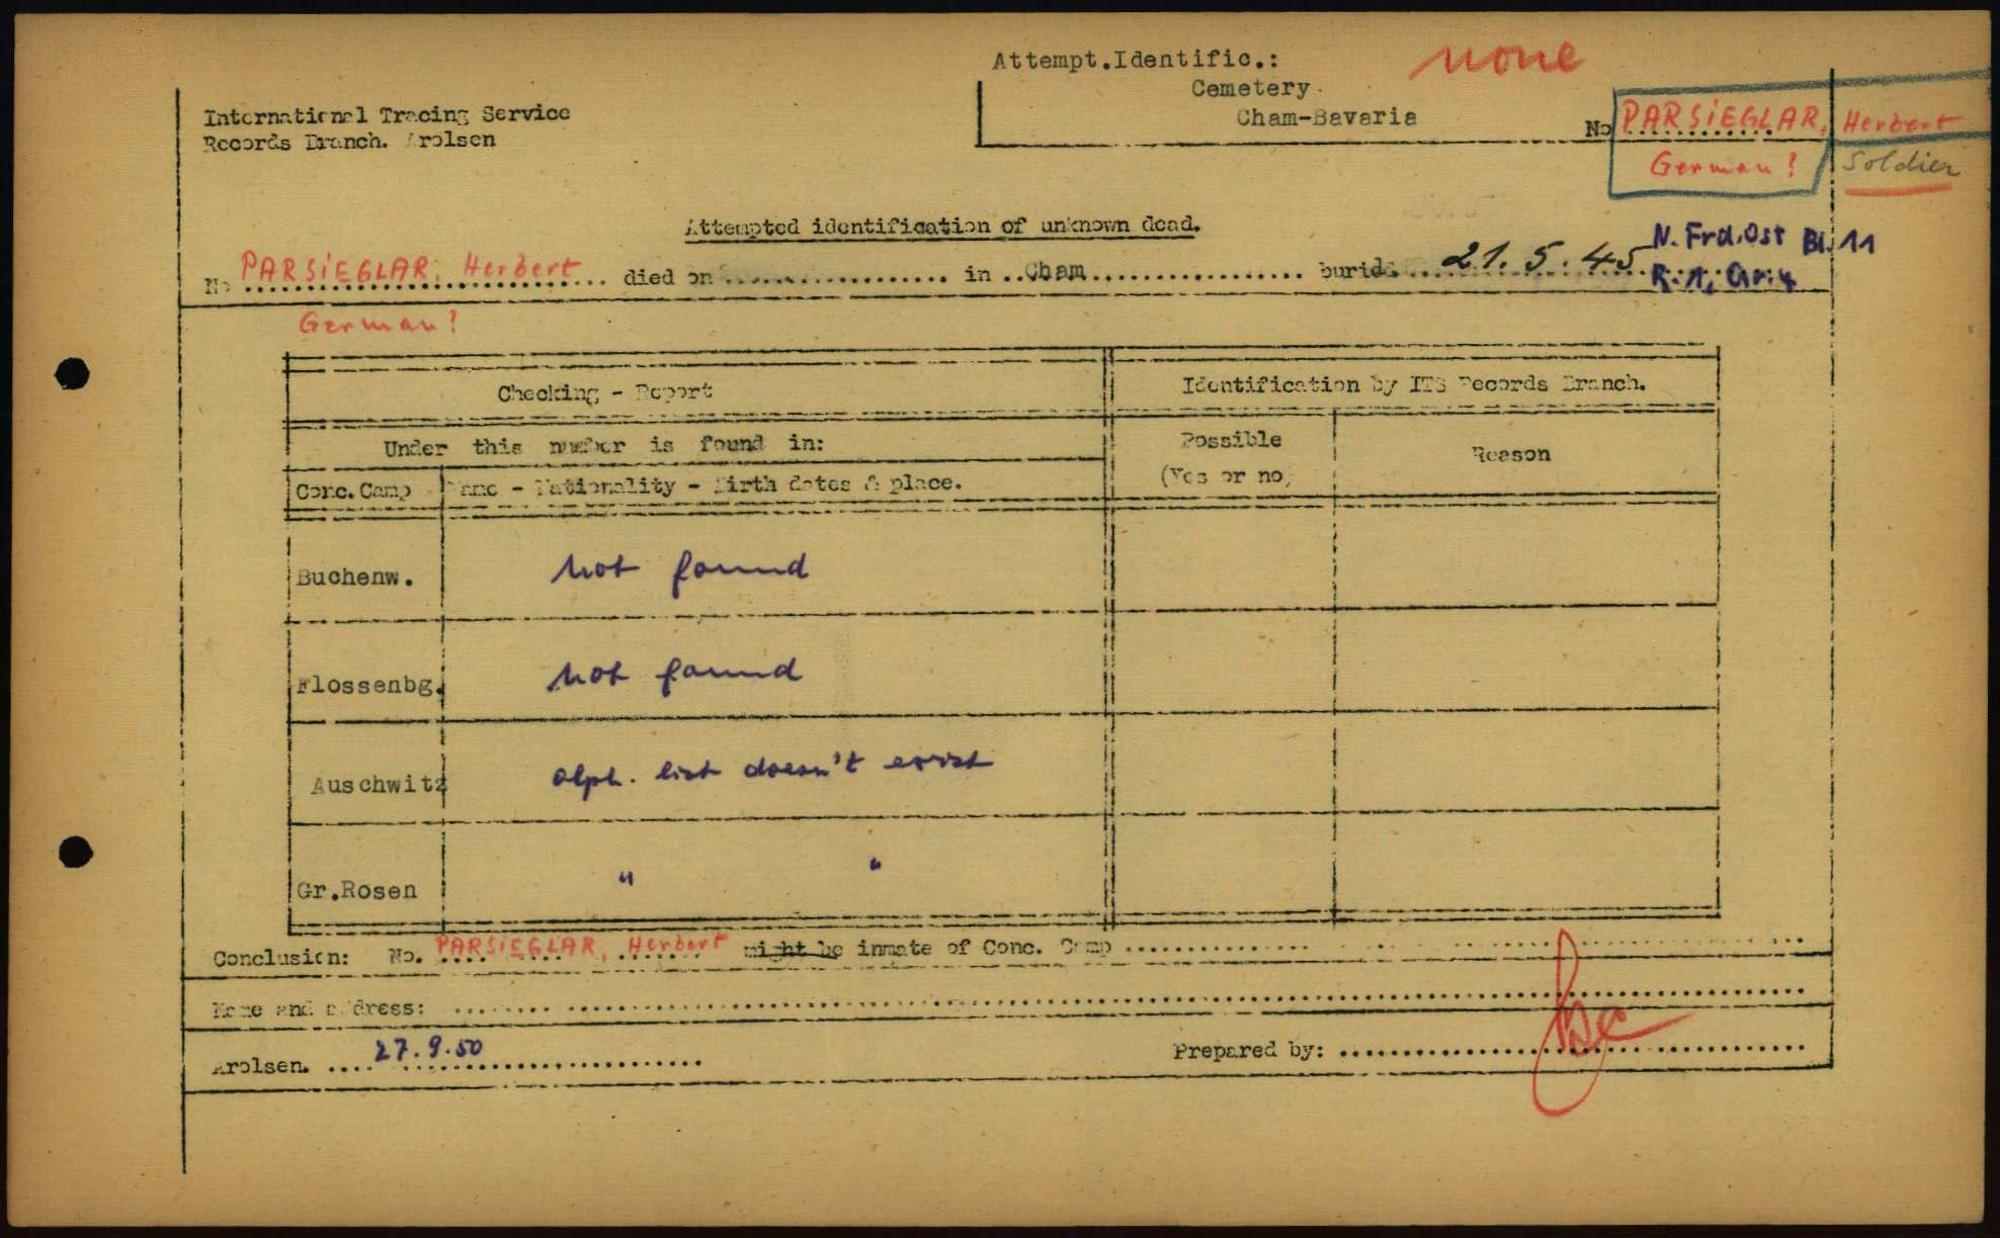 Attempt.Identific.: none
Cemetery
Cham-Bavaria
International Tracing Service
Records Branch. Arolsen
No PARSIEGLAR, Herbert
German! Soldier
Attempted identification of unknown dead.
No PARSIEGLAR, Herbert died on in Cham buried 21.5.45 N. Frd. Ost Bl. 11
R. 1, Gr. 4
German!
Checking - Report Identification by ITS Records Branch.
Under this number is found in: Possible (Yes or no) Reason
Conc. Camp Name - Nationality - Birth dates & place.
Buchenw. not found
Flossenbg. not found
Auschwitz alph. list doesn't exist
Gr.Rosen " "
Conclusion: No. PARSIEGLAR, Herbert might be inmate of Conc. Camp
Name and address:
Arolsen. 27.9.50 Prepared by: